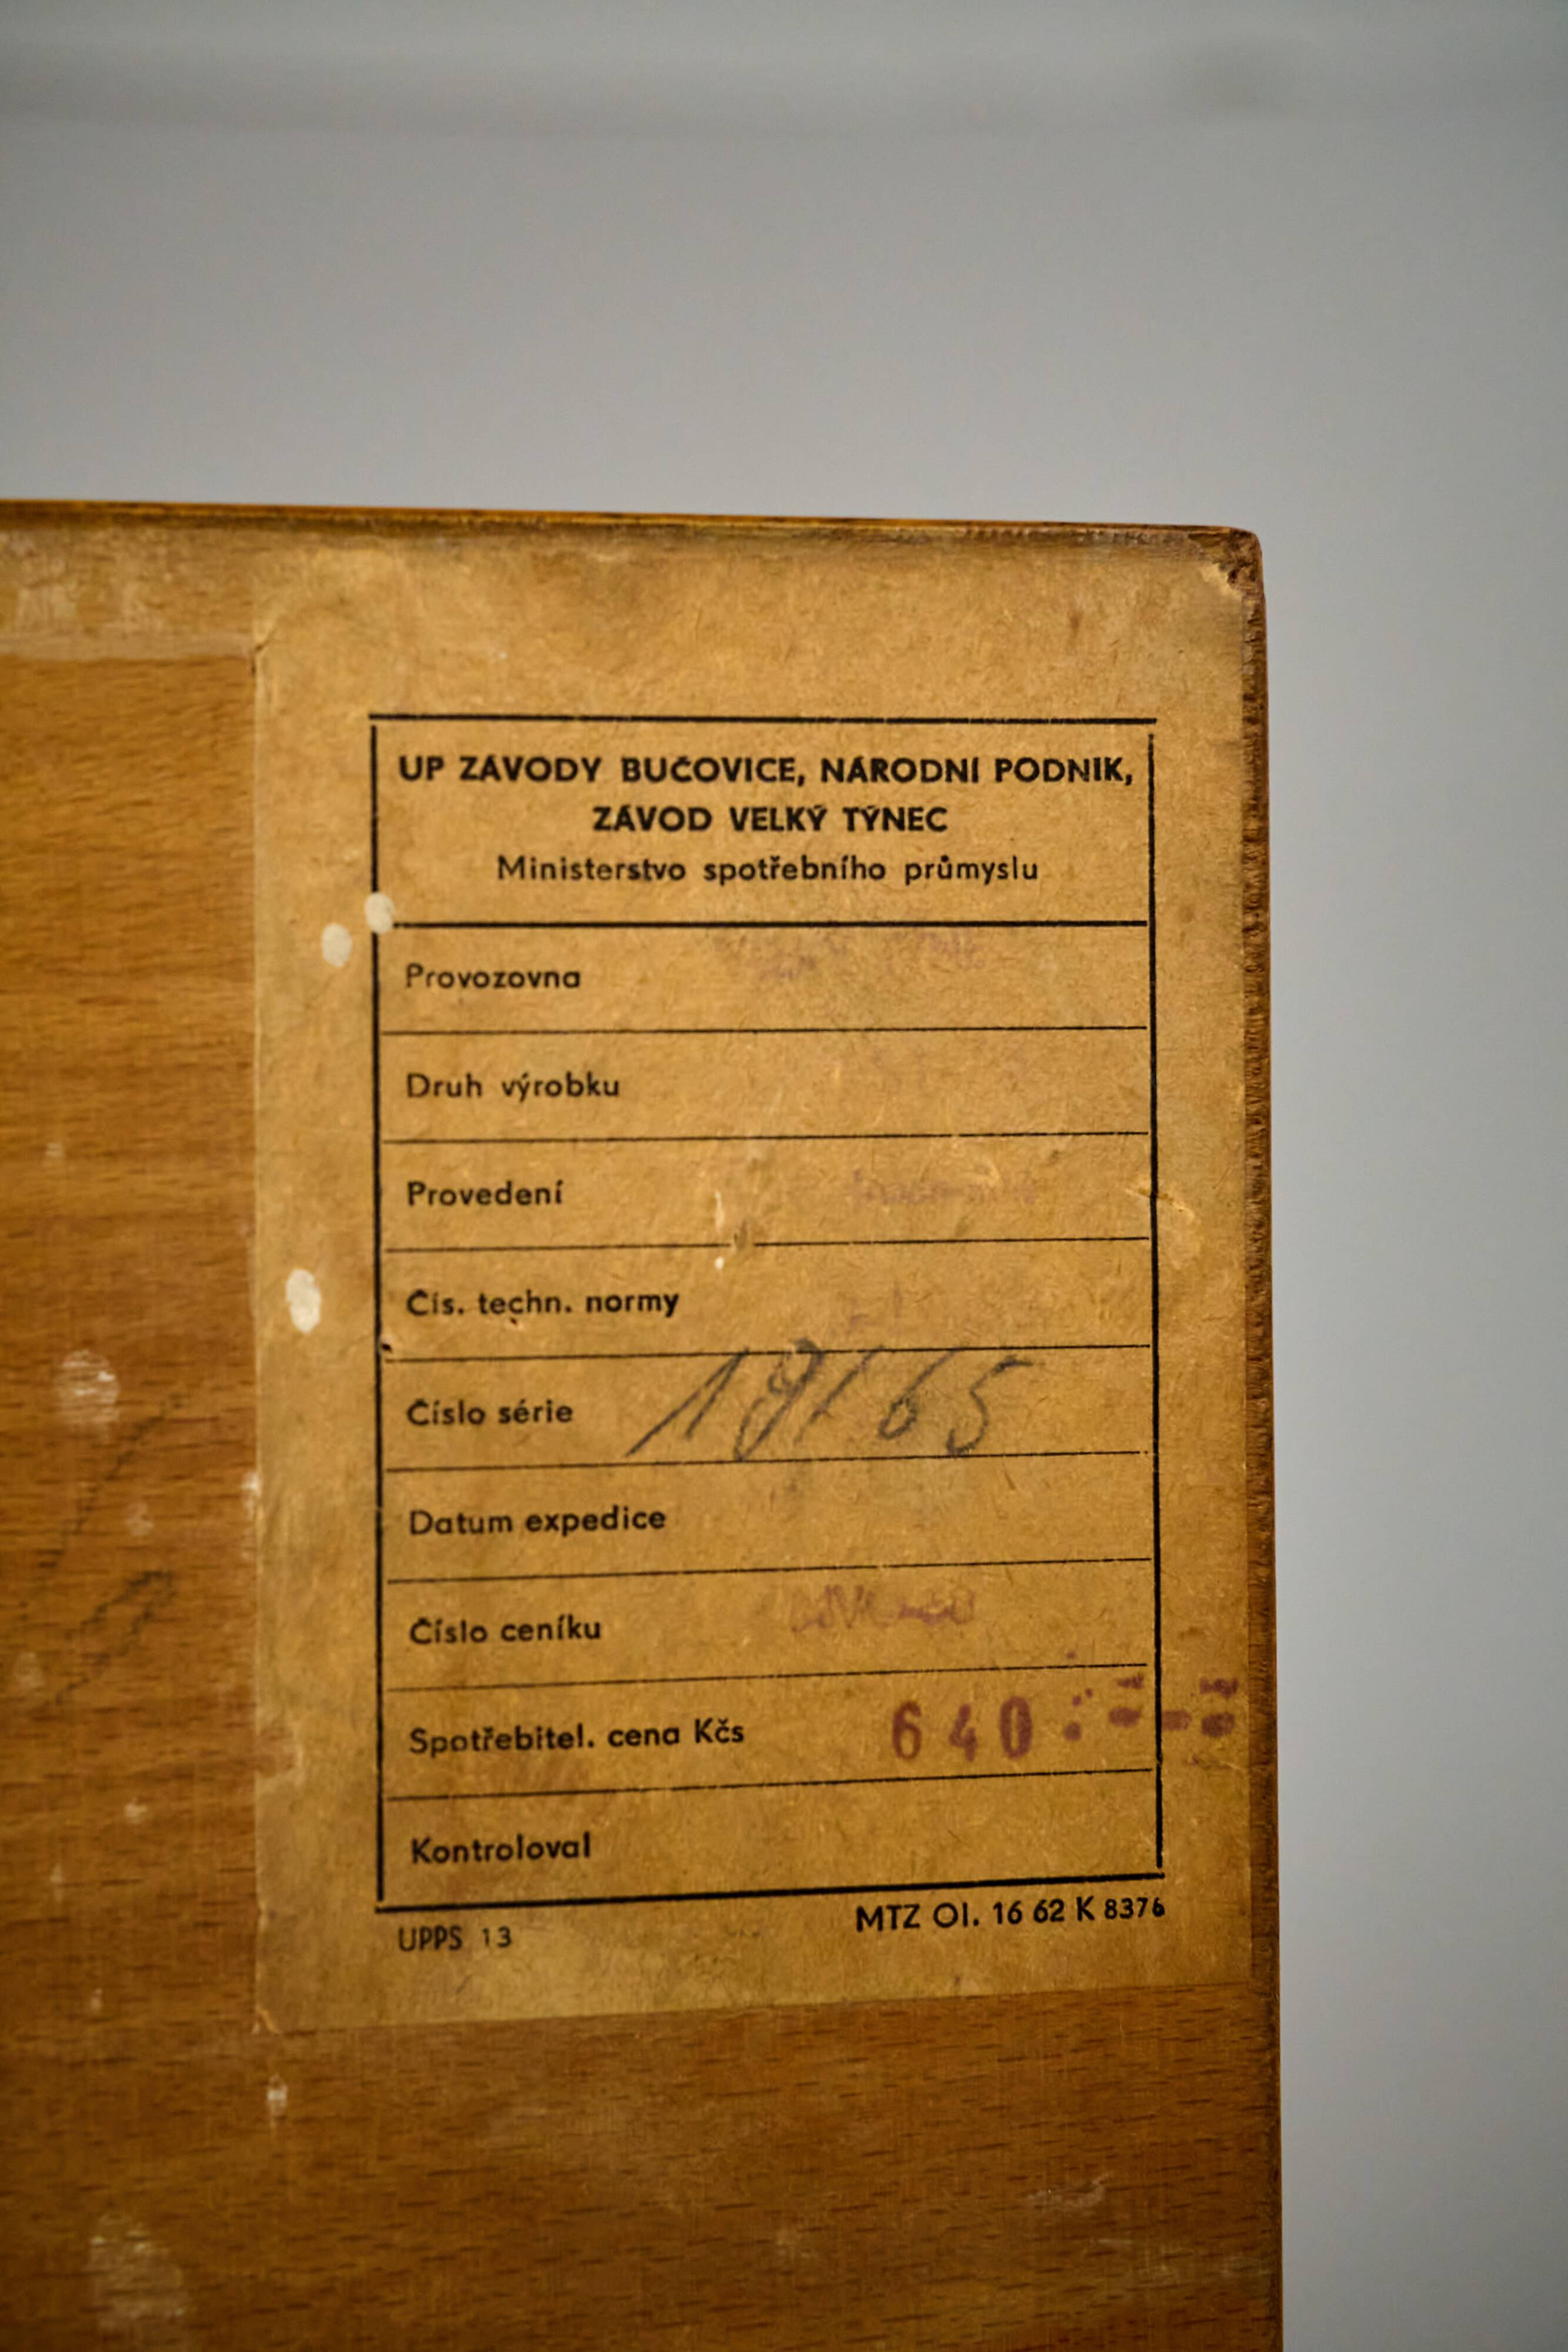 UP ZÁVODY BUČOVICE, NÁRODNÍ PODNIK,
ZÁVOD VELKÝ TÝNEC
Ministerstvo spotřebního průmyslu
Provozovna
Druh výrobku
Provedení
Čís. techn. normy
Číslo série 19/65
Datum expedice
Číslo ceníku
Spotřebitel. cena Kčs 640
Kontroloval
UPPS 13 MTZ Ol. 16 62 K 8376